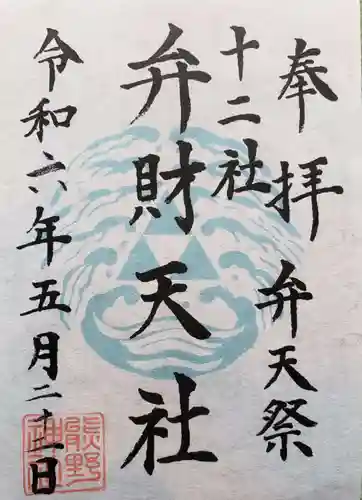 奉拝 弁天祭
十二社
弁財天社
令和六年五月二十二日
熊野神